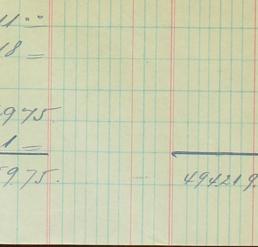 11 ..
18 =
975.
1 =
975. 494219.